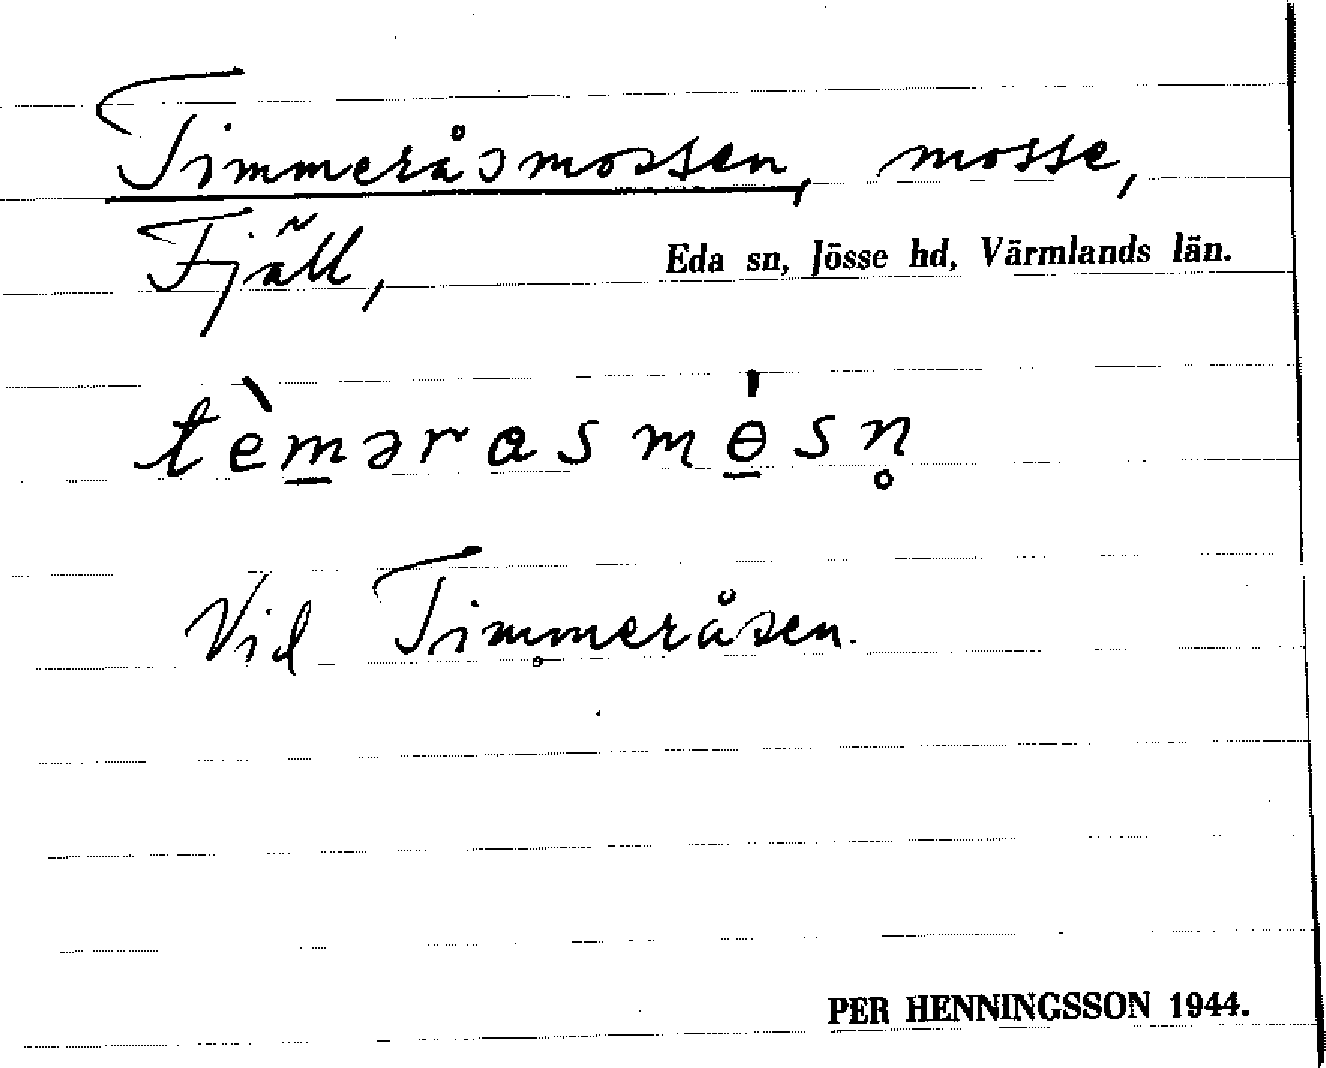 Timmeråsmossen, mosse,
Fjäll, Eda sn, Jösse hd, Värmlands län.
tèm̲ərasmɵ̲́sn̥
Vid Timmeråsen.
PER HENNINGSSON 1944.